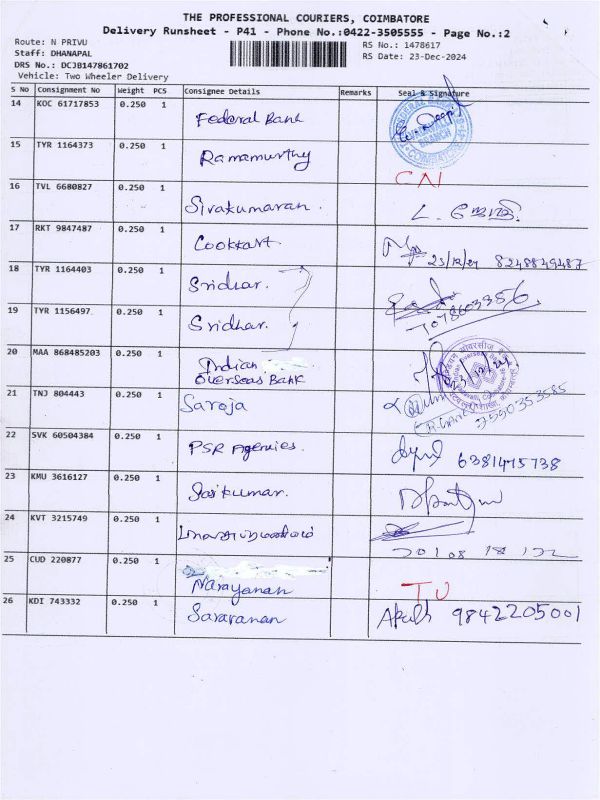 THE PROFESSIONAL COURIERS, COIMBATORE
Delivery Runsheet - P41 - Phone No.:0422-3505555 - Page No.:2
Route: N PRIVU
RS No.: 1478617
Staff: DHANAPAL
RS Date: 23-Dec-2024
DRS No.: DCJB147861702
Vehicle: Two Wheeler Delivery
S No Consignment No Weight PCS Consignee Details Remarks Seal & Signature
14 KOC 61717853 0.250 1 Federal Bank
15 TYR 1164373 0.250 1 Ramamurthy
16 TVL 6680827 0.250 1 Sivakumaran.
17 RKT 9847487 0.250 1 Cookkart. 23/12/24 8248849487
18 TYR 1164403 0.250 1 Sridhar.
19 TYR 1156497 0.250 1 Sridhar.
20 MAA 868485203 0.250 1 Indian
Overseas Bank
21 TNJ 804443 0.250 1 Saroja
22 SVK 60504384 0.250 1 PSR Agencies. 6381475738
23 KMU 3616127 0.250 1 Saikumar.
24 KVT 3215749 0.250 1
25 CUD 220877 0.250 1 Narayanan
26 KDI 743332 0.250 1 Saravanan 9842205001